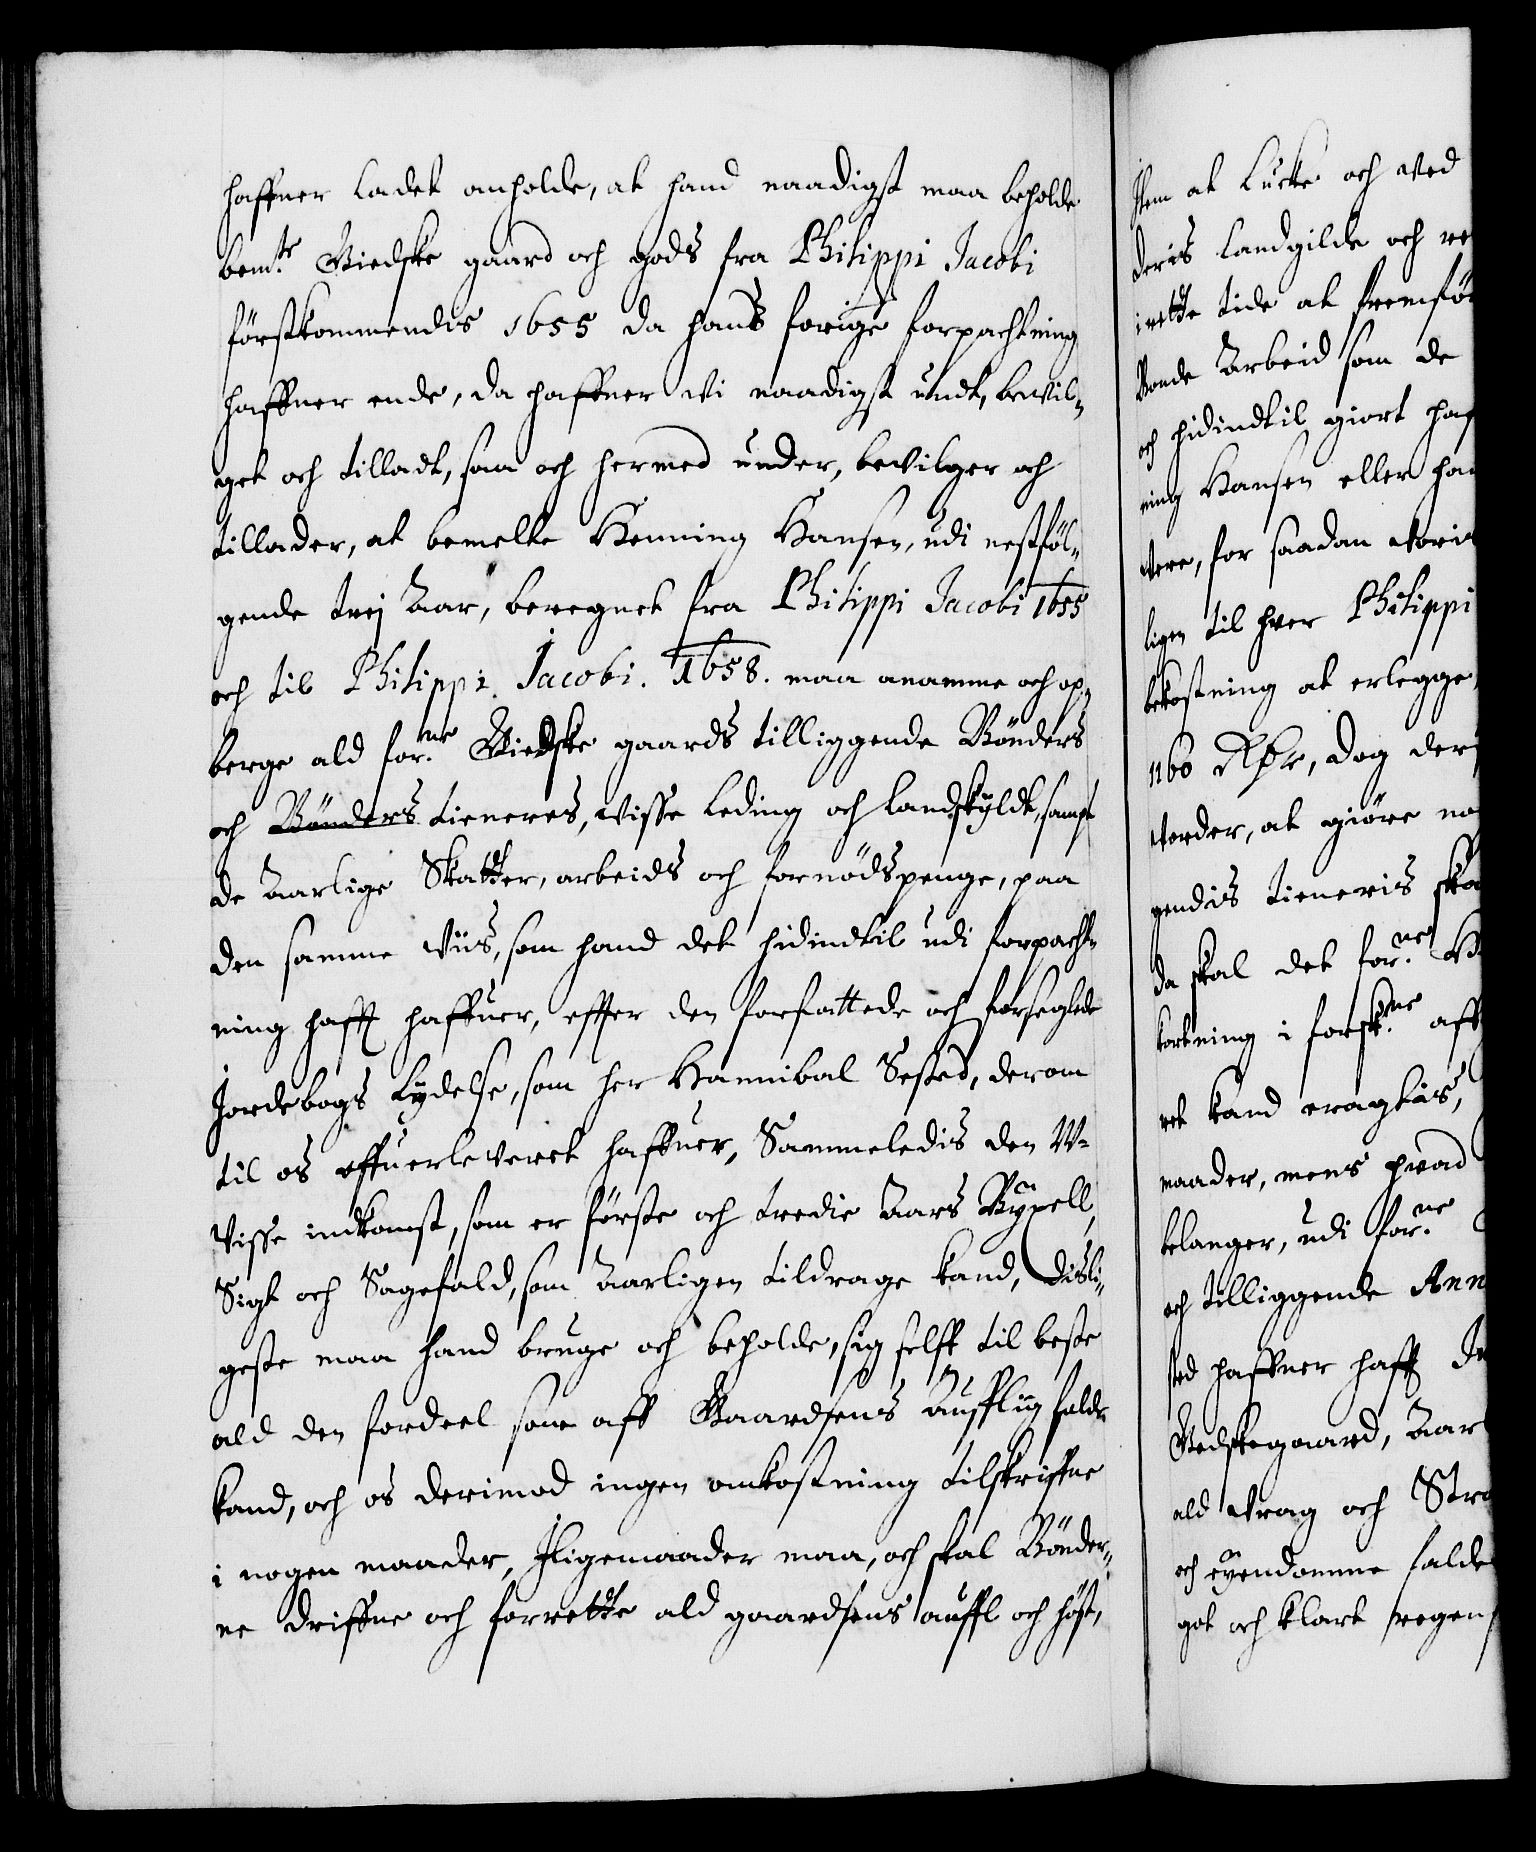 haffuer ladet anholde, at hand naadigst maa beholde
bem:te Viedske gaard och gods fra Philippi Jacobi
förstkommendis 1655 da hans forige forpachtning
haffuer ende, da haffuer vi naadigst undt, bevil,,
get och tilladt, saa och hermed under, bevilger och
tillader, at bemelte Henning Hansen, udi nestföl,,
gende trej Aar, beregnet fra Philippi Jacobi 1655
och til Philippi Jacobi. 1658. maa anamme och op,,
berge ald for:ne Viedske gaards tilliggende Bönders
och Bönders tieneres, visse leding och landskyldt, sampt
de Aarlige Skatter, arbeids och fornödspenge, paa
den samme viis, som hand det hidindtil udi forpacht,,
ning hafft haffuer, effter den forfattede och forseglede
Jordebogs lydelse, som her Hannibal Sested, derom
til os offuerleveret haffuer, Sammeledis den W-
visse indkomst, som er förste och tredie Aars Bÿxell,
Sigt och Sagefald, som Aarligen tildrage kand, disli,,
geste maa hand bruge och beholde, sig selff til beste
ald den fordeel som aff Gaardsens Aufflig falde
kand, och os derimod ingen omkostning tilskriffue
i nogen maader, Iligemaader maa, och skal Bönder,,
ne driffue och forrette ald gaardsens auffl och höst,
Item at lucke och ved
deris landgilde och re
i rette tide at fremför
Bonde Arbeid som de
och hidindtil giort haf
ning Hansen eller han
vere, for saadan
ligen til hver Philippi
bekostning at erlegge,
1160 Rdr, dog der
vorder, at giöre no
gendis tieneris ska
da skal det for:ne
kortning i forsk:ne aff
ret kand eragtis,
maader, mens hvad
belanger, udi for:ne
och tilliggende Ann
sted haffuer hafft
Vedskegaard, Aar
ald vrag och Stra
och eyendomme falde
got och klart regens